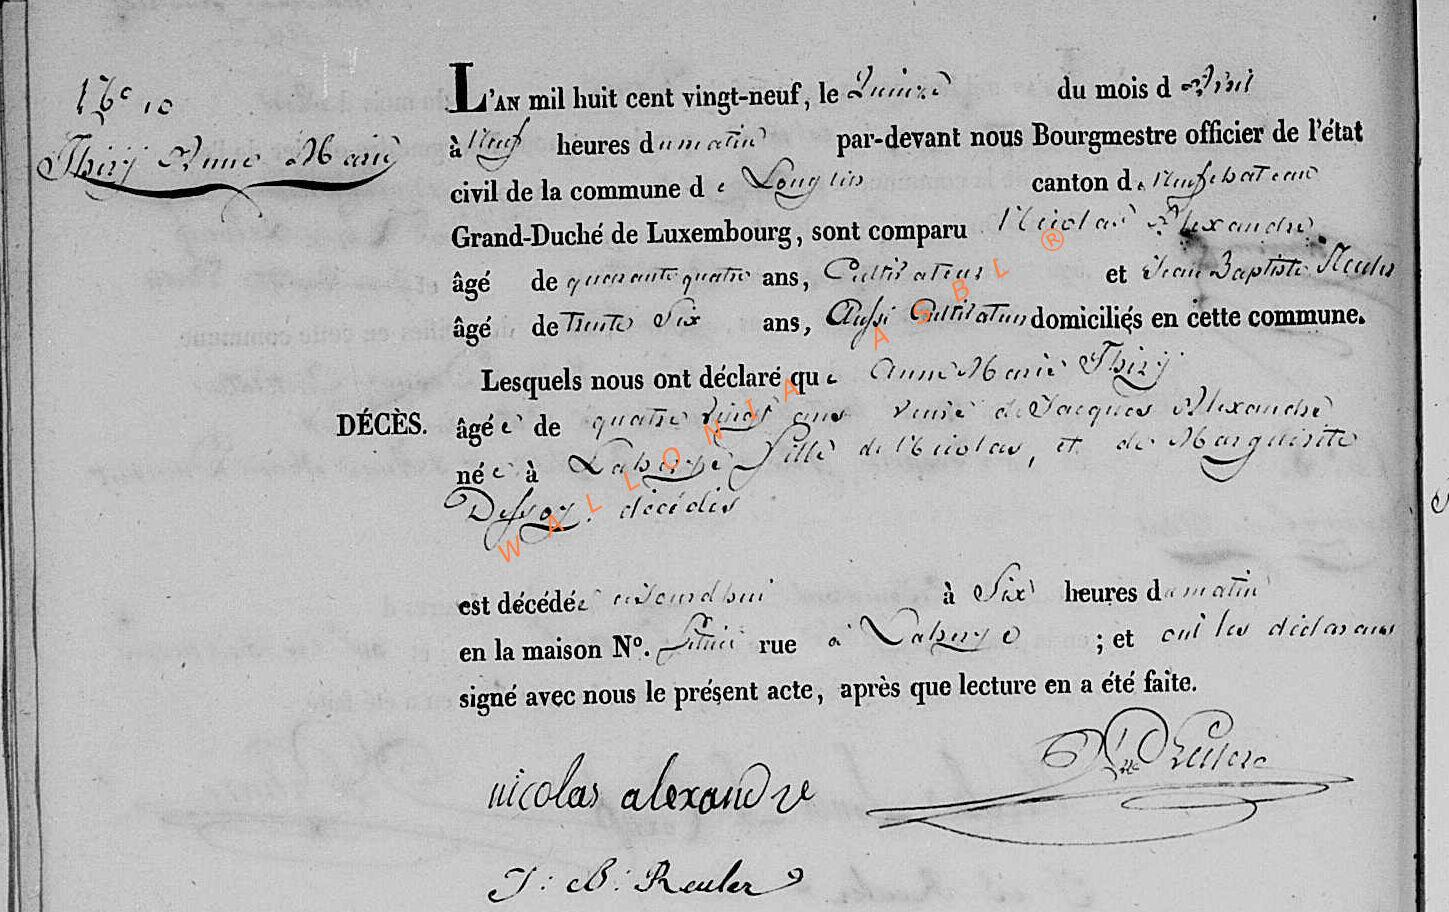 16e
Thiry Anne Marie
L'AN mil huit cent vingt-neuf, le Quinze du mois d'Avril
à Neuf heures du matin par-devant nous Bourgmestre officier de l'état
civil de la commune de Longlier canton de Neufchateau
Grand-Duché de Luxembourg, sont comparu Nicolas Alexandre
âgé de quarante quatre ans, Cultivateur et Jean Baptiste Reuler
âgé de Trente Six ans, Aussi Cultivateur domiciliés en cette commune.
Lesquels nous ont déclaré que Anne Marie Thiry
DÉCÈS. âgée de quatre vingt ans veuve de Jacques Alexandre
née à Laherie fille de Nicolas, et de Marguerite
Dessoy. décédés
est décédée aujourdhui à Six heures du matin
en la maison No. rue à ; et ont les déclarans
signé avec nous le présent acte, après que lecture en a été faite.
nicolas alexandre
J: B: Reuler
WALLONIA ASBL ®